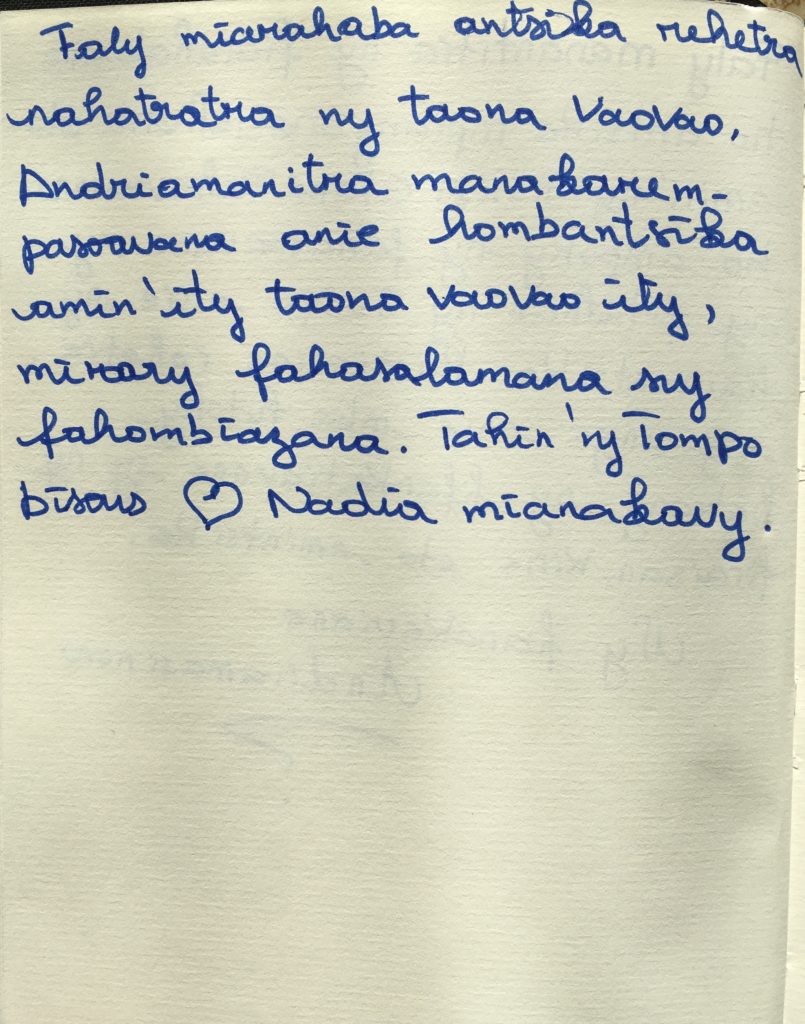 Faly miarahaba antsika rehetra
nahatratra ny taona vaovao,
Andriamanitra manakarem-
pasoavana anie hombantsika
amin'ity taona vaovao ity,
mirary fahasalamana sy
fahombiazana. Tahin'ny Tompo
bisous ♡ Nadia mianakavy.